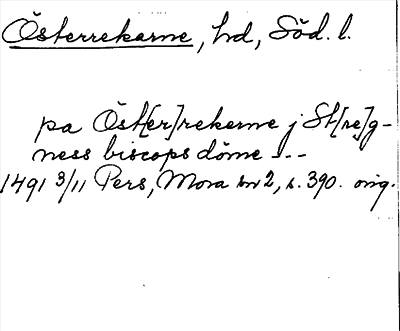 Österrekarne, hd, Söd. l.
pa Öst[er]rekerne j St[re]g-
ness biscops döme ---
1491 3/11 Pers, Mora nr 2, s. 390. orig.